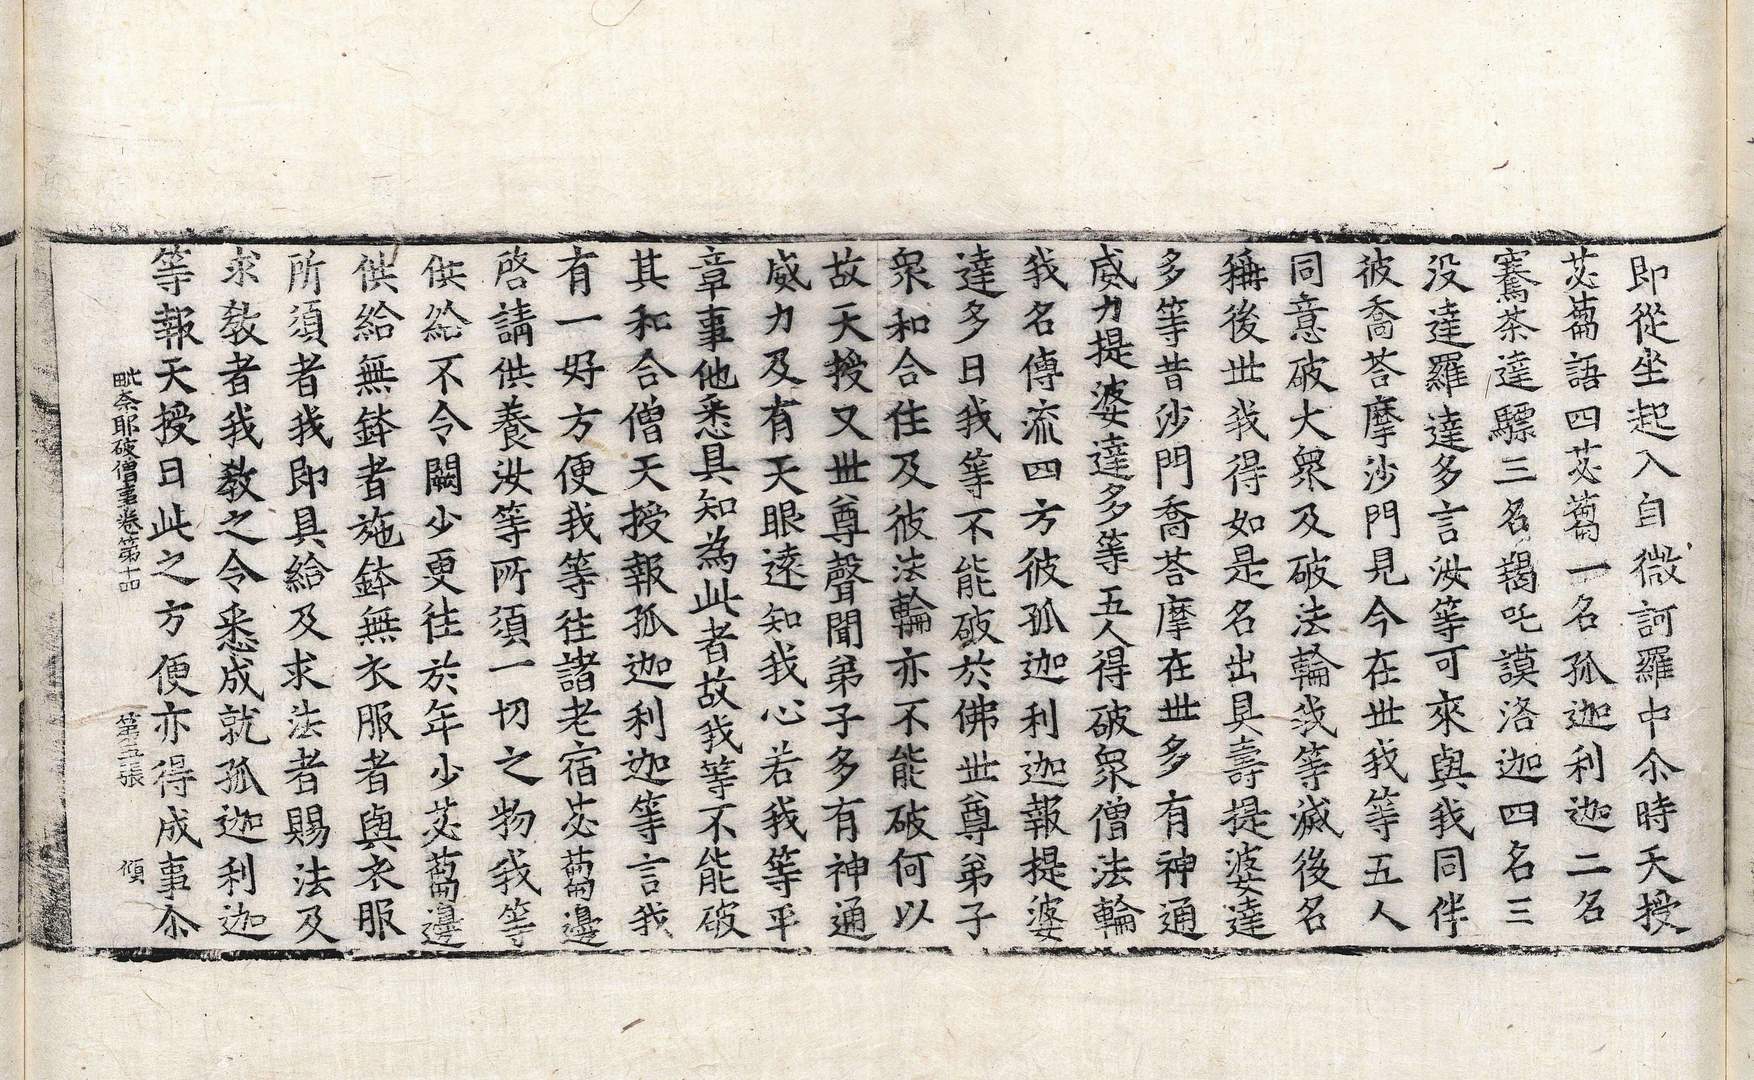 即從坐起入自微訶羅中尒時天授
苾蒭語四苾蒭一名孤迦利迦二名
騫茶達驃三名羯吒謨洛迦四名三
没達羅達多言汝等可來與我同伴
彼喬荅摩沙門見今在世我等五人
同意破大衆及破法輪我等滅後名
稱後世我得如是名出具壽提婆達
多等昔沙門喬荅摩在世多有神通
威力提婆達多等五人得破衆僧法輪
我名傳流四方彼孤迦利迦報提婆
達多曰我等不能破於佛世尊弟子
衆和合住及彼法輪亦不能破何以
故天授又世尊聲聞弟子多有神通
威力及有天眼遠知我心若我等平
章事他悉具知為此者故我等不能破
其和合僧天授報孤迦利迦等言我
有一好方便我等往諸老宿苾蒭邊
啓請供養汝等所須一切之物我等
供給不令闕少更往於年少苾蒭邊
供給無鉢者施鉢無衣服者與衣服
所須者我即具給及求法者賜法及
求敎者我敎之令悉成就孤迦利迦
等報天授曰此之方便亦得成事尒
毗奈耶破僧事卷第十四 第五張 傾